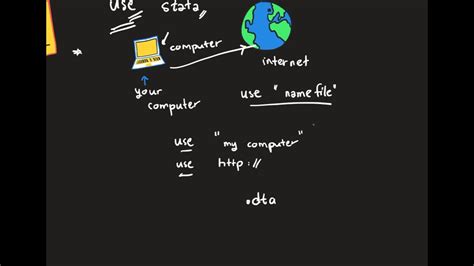 use stata
computer
internet
your
computer
use "namefile"
use "my computer"
use http://
.dta